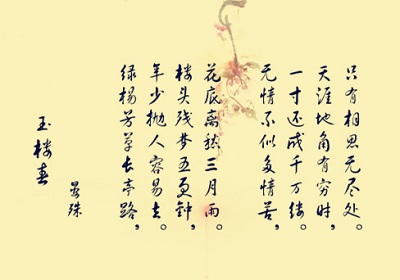 玉楼春
晏殊
绿杨芳草长亭路，
年少抛人容易去。
楼头残梦五更钟，
花底离愁三月雨。
无情不似多情苦，
一寸还成千万缕。
天涯地角有穷时，
只有相思无尽处。